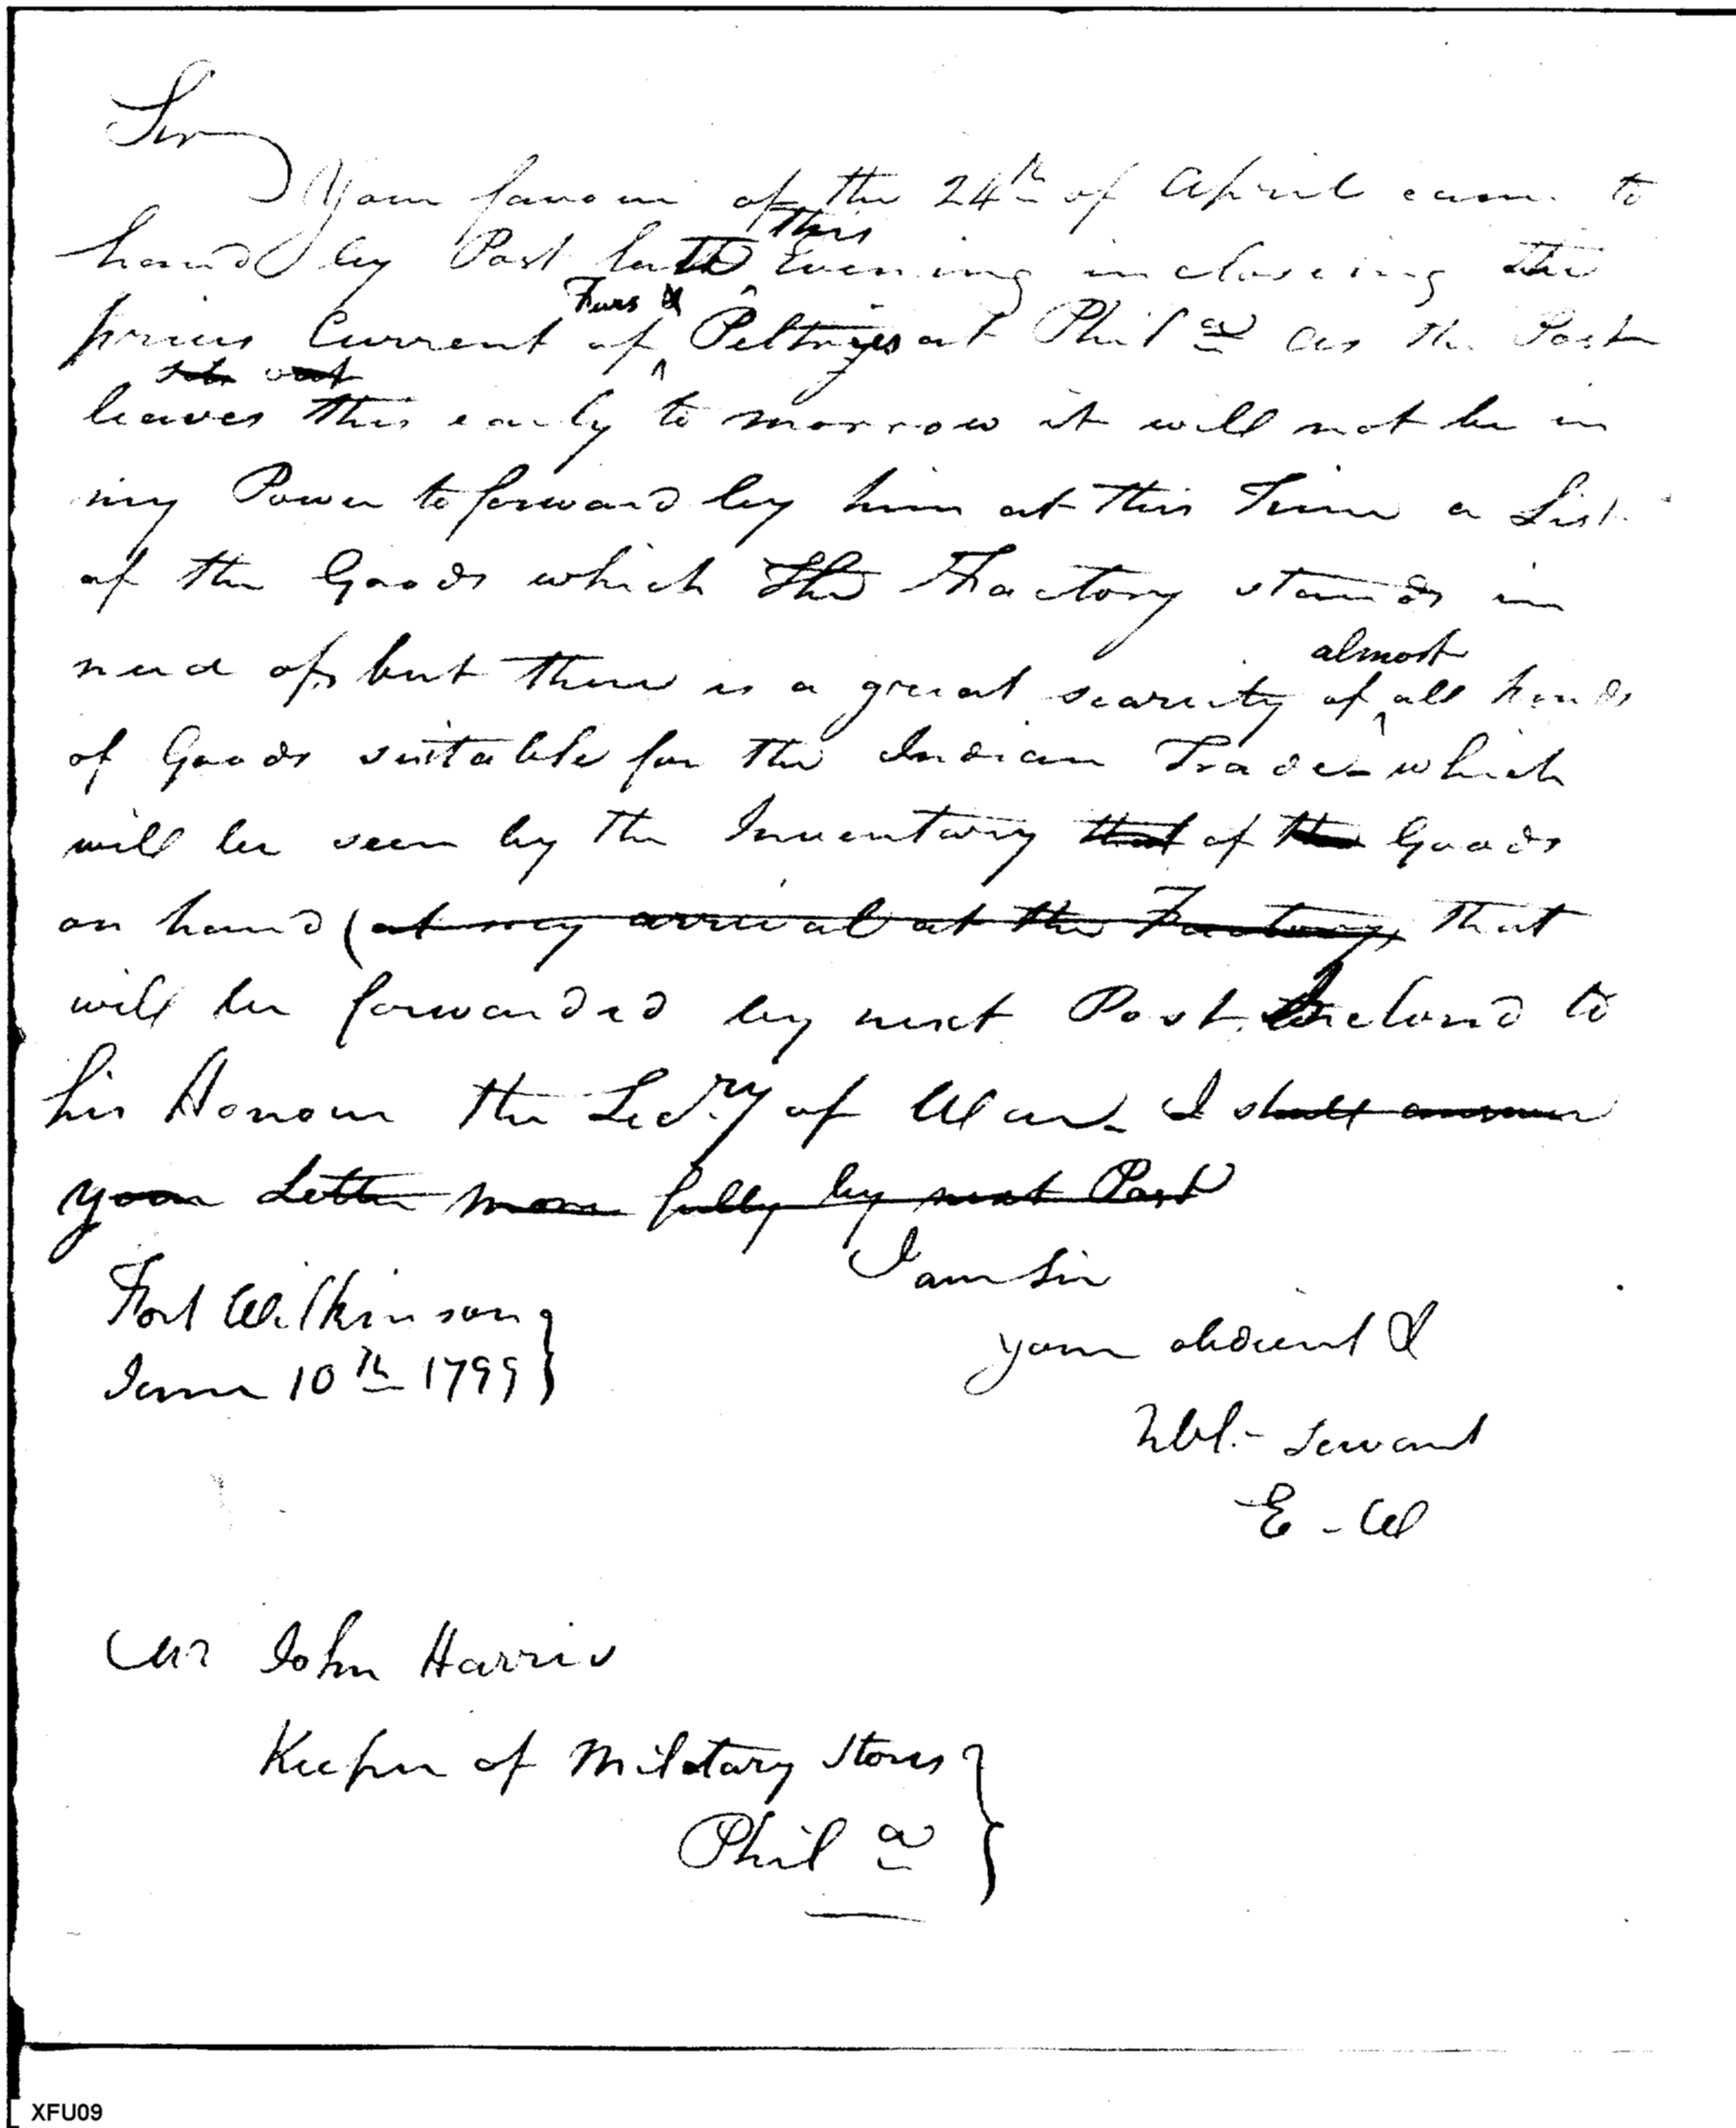 Sir
Your favour of the 24th of April came to
this
hand by Post late Evening inclosing the
Furs &
prices Current of Peltryes at Phila as the Post
sets out
leaves this early to morrow it will not be in
my Power to forward by him at this Time a List
of the Goods which the Factory stands in
almost
need of, but there is a great scarcity of all kinds
of Goods suitable for the Indian Trade - which
will be seen by the Inventory that of the Goods
on hand (at my arrival at the Factory, that
will be forwarded by next Post, to his
his Honour the Secry of War - I shall answer
your Letter more fully by next Post
I am Sir
Fort Wilkinson
your obdient &
June 10th 1799
Hbl.- Servant
E - W
Mr John Harris
Keeper of Military Stores
Phila
XFU09